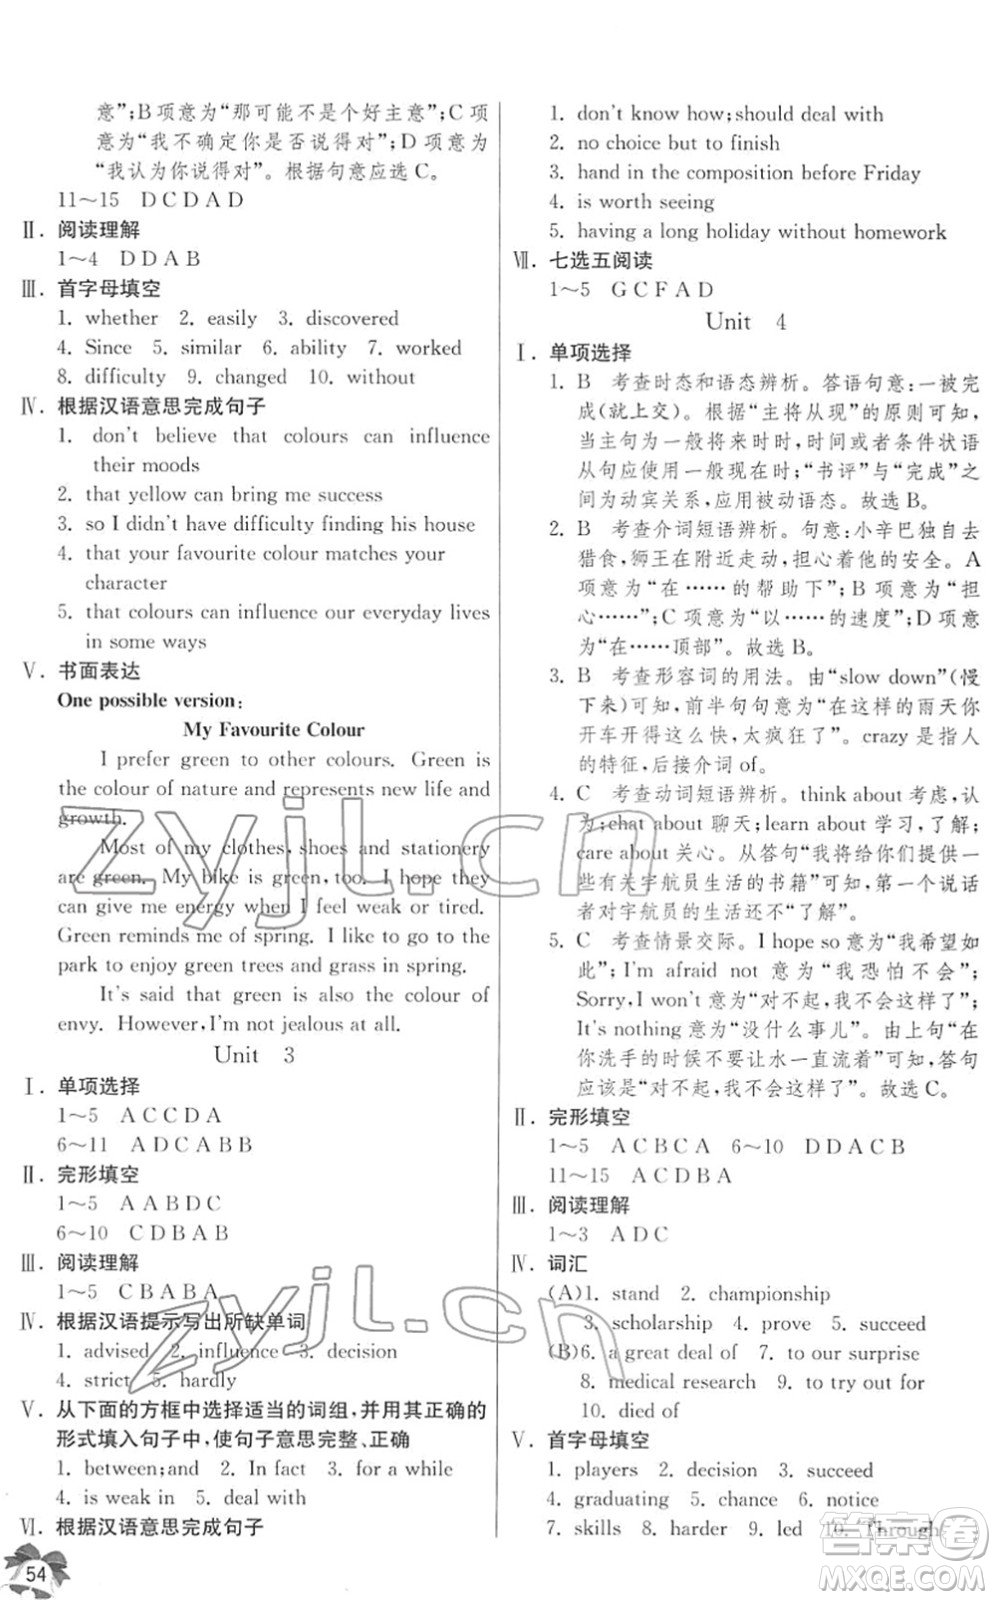 意”;B 项意为“那可能不是个好主意”;C 项
意为“我不确定你是否说得对”;D 项意为
“我认为你说得对”。根据句意应选 C。
11～15 D C D A D
Ⅱ. 阅读理解
1～4 D D A B
Ⅲ. 首字母填空
1. whether 2. easily 3. discovered
4. Since 5. similar 6. ability 7. worked
8. difficulty 9. changed 10. without
Ⅳ. 根据汉语意思完成句子
1. don't believe that colours can influence
their moods
2. that yellow can bring me success
3. so I didn't have difficulty finding his house
4. that your favourite colour matches your
character
5. that colours can influence our everyday lives
in some ways
Ⅴ. 书面表达
One possible version:
My Favourite Colour
I prefer green to other colours. Green is
the colour of nature and represents new life and
growth.
Most of my clothes, shoes and stationery
are green. My bike is green, too. I hope they
can give me energy when I feel weak or tired.
Green reminds me of spring. I like to go to the
park to enjoy green trees and grass in spring.
It's said that green is also the colour of
envy. However, I'm not jealous at all.
Unit 3
Ⅰ. 单项选择
1～5 A C C D A
6～11 A D C A B B
Ⅱ. 完形填空
1～5 A A B D C
6～10 C D B A B
Ⅲ. 阅读理解
1～5 C B A B A
Ⅳ. 根据汉语提示写出所缺单词
1. advised 2. influence 3. decision
4. strict 5. hardly
Ⅴ. 从下面的方框中选择适当的词组,并用其正确的
形式填入句子中,使句子意思完整、正确
1. between;and 2. In fact 3. for a while
4. is weak in 5. deal with
Ⅵ. 根据汉语意思完成句子
54
1. don't know how;should deal with
2. no choice but to finish
3. hand in the composition before Friday
4. is worth seeing
5. having a long holiday without homework
Ⅶ. 七选五阅读
1～5 G C F A D
Unit 4
Ⅰ. 单项选择
1. B 考查时态和语态辨析。答语句意:一被完
成(就上交)。根据“主将从现”的原则可知,
当主句为一般将来时时,时间或者条件状语
从句应使用一般现在时;“书评”与“完成”之
间为动宾关系,应用被动语态。故选 B。
2. B 考查介词短语辨析。句意:小辛巴独自去
猎食,狮王在附近走动,担心着他的安全。A
项意为“在……的帮助下”;B 项意为“担
心……”;C 项意为“以……的速度”;D 项意
为“在……顶部”。故选 B。
3. B 考查形容词的用法。由“slow down”(慢
下来)可知,前半句句意为“在这样的雨天你
开车开得这么快,太疯狂了”。crazy 是指人
的特征,后接介词 of。
4. C 考查动词短语辨析。think about 考虑,认
为;chat about 聊天;learn about 学习,了解;
care about 关心。从答句“我将给你们提供一
些有关宇航员生活的书籍”可知,第一个说话
者对宇航员的生活还不“了解”。
5. C 考查情景交际。I hope so 意为“我希望如
此”;I'm afraid not 意为“我恐怕不会”;
Sorry,I won't 意为“对不起,我不会这样了”;
It's nothing 意为“没什么事儿”。由上句“在
你洗手的时候不要让水一直流着”可知,答句
应该是“对不起,我不会这样了”。故选 C。
Ⅱ. 完形填空
1～5 A C B C A 6～10 D D A C B
11～15 A C D B A
Ⅲ. 阅读理解
1～3 A D C
Ⅳ. 词汇
(A)1. stand 2. championship
3. scholarship 4. prove 5. succeed
(B)6. a great deal of 7. to our surprise
8. medical research 9. to try out for
10. died of
Ⅴ. 首字母填空
1. players 2. decision 3. succeed
4. graduating 5. chance 6. notice
7. skills 8. harder 9. led 10. Through
zyjl.cn
zyjl.cn
答案圈
MXQE.COM